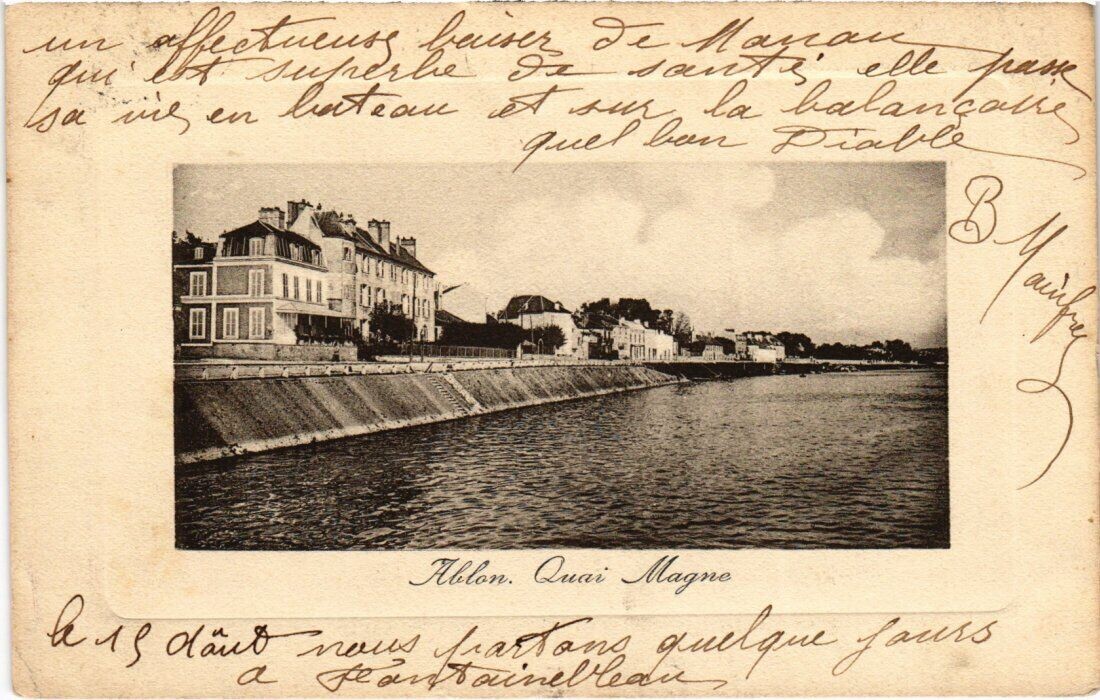 un affectueuse baiser de Manan
qui est superbe de santé, elle passe
sa vie, en bateau et sur la balançoire
quel bon Diable
B Mainfre
Ablon. Quai Magne
le 15 dâout nous partons quelque jours
a Fontainebleau